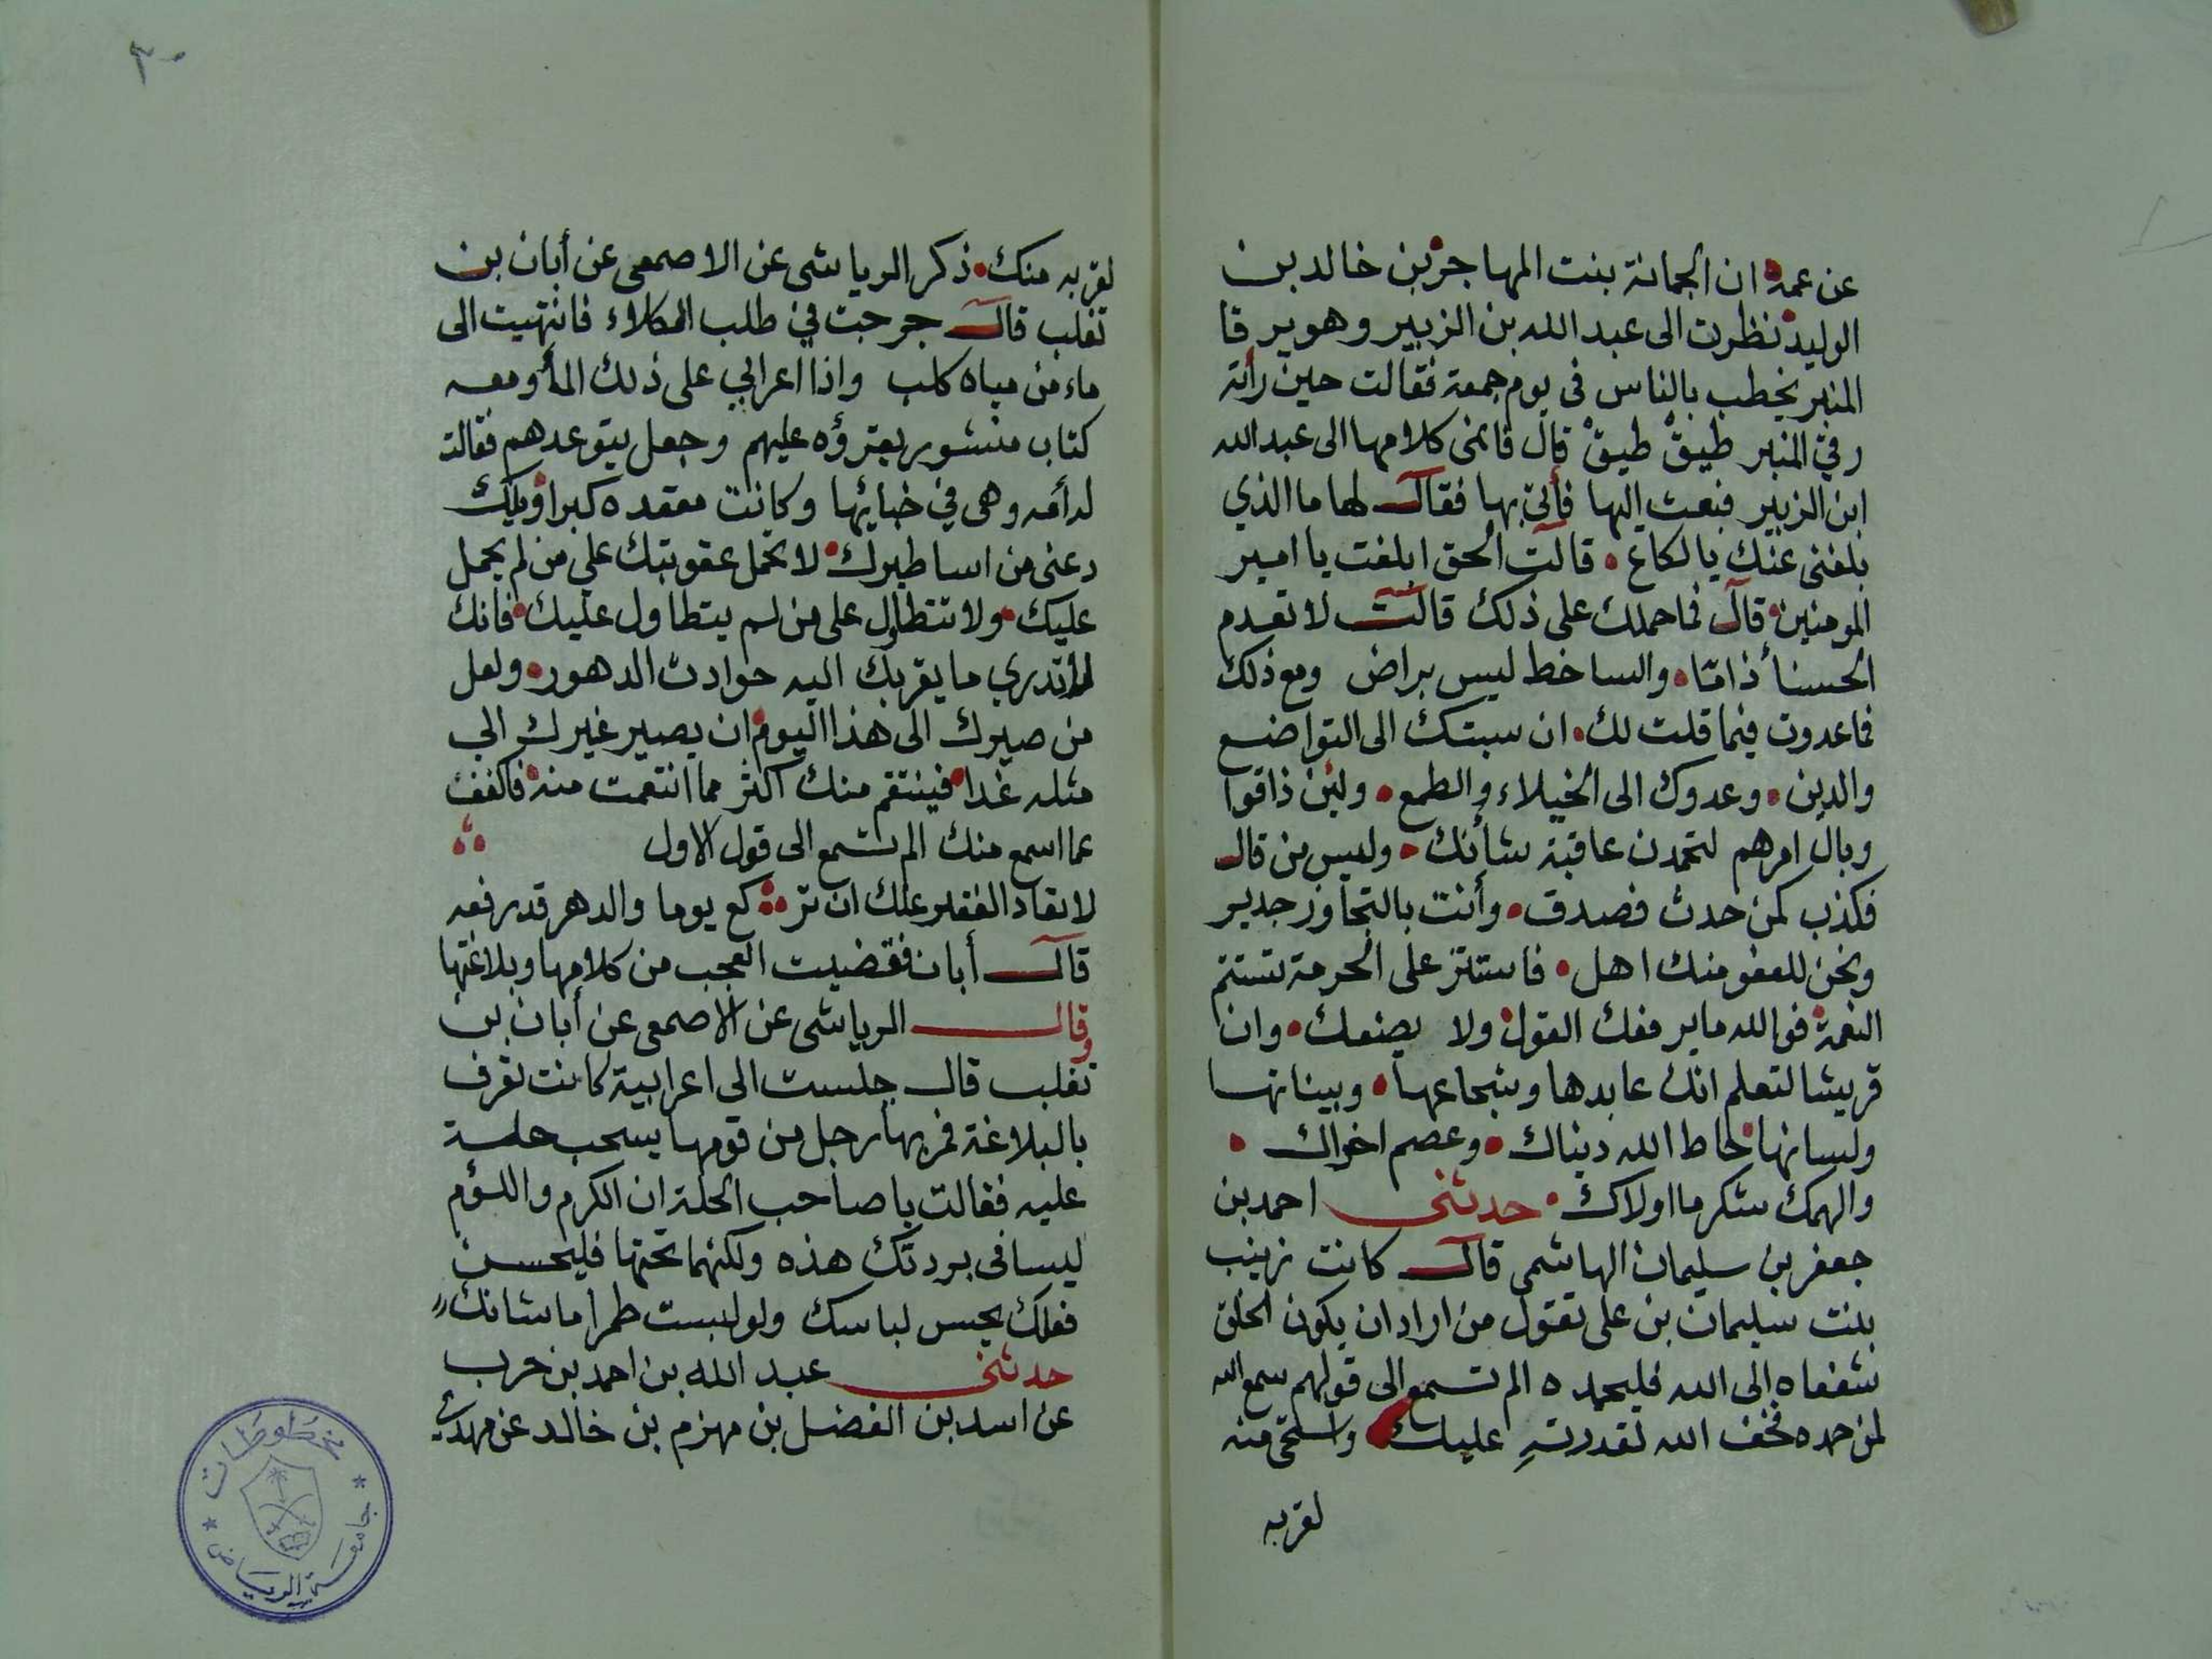 عن عمه ان الجمانة بنت المهاجر بن خالد بن
الوليد نظرت الى عبد الله بن الزبير وهو يرقا
المنبر يخطب بالناس في يوم جمعة فقالت حين رأته
رقي المنبر طيقْ طيقْ قال فانمى كلامها الى عبد الله
ابن الزبير فبعث اليها فأتى بها فقال لها ما الذي
بلغنى عنك يا لكاع قالت الحق ابلغت يا امير
المومنين قال فما حملك على ذلك قالت لا تعدم
الحسنأ ذامّا والساخط ليس براض ومع ذلك
فما عدوت فيما قلت لك ان سبتك الى التواضع
والدين وعدوك الى الخيلاء والطمع ولئن ذاقوا
وبال امرهم لتحمدن عاقبة شأنك وليس من قال
فكذب كمن حدث فصدق وأنت بالتجاوز جدير
ونحن للعفو منك اهل فاستتر على الحرمة تستتم
النعمة فوالله ما يرفعك القول ولا يضعك وان
قريشا لتعلم انك عابدها وشجاعها وبينانها
ولسانها حاط الله دنياك وعصم اخراك
والهمك شكر ما اولاك حدثنى احمد بن
جعفر بن سليمان الهاشمى قال كانت زينب
بنت سليمان بن على تقول من اراد ان يكون الخلق
شفعاه الى الله فليحمده الم تسمع الى قولهم سمع الله
لمن حمده فخف الله لقدرتهِ عليك واستحى منه
لقربه
٣٠
لقربه منك ذكر الرياشى عن الاصمعى عن أبان بن
تغلب قال خرجت في طلب الكلاء فانتهيت الى
ماء من مياه كلب واذا اعرابي على ذلك المأ ومعه
كتاب منشور يقرؤه عليهم وجعل يتوعدهم فقالت
له أمه وهى في خبائها وكانت مقعده كبرا ويلك
دعنى من اساطيرك لا تحمل عقوبتك علي من لم يحمل
عليك ولا تتطاول على من لم يتطاول عليك فانك
لا تدري ما يقربك اليه حوادث الدهور ولعل
من صيرك الى هذا اليوم ان يصير غيرك الي
مثله غدا فينتقم منك اكثر مما انتقمت منه فاكفف
عما اسمع منك الم تسمع الى قول الاول
لا تعاد الفقير علك ان تر كع يوما والدهر قد رفعه
قال أبان فقضيت العجب من كلامها وبلاغتها
وقال الرياشى عن الاصمعى عن أبان بن
تغلب قال جلست الى اعرابية كانت تعرف
بالبلاغة فمر بها رجل من قومها يسحب حلة
عليه فقالت يا صاحب الحلة ان الكرم واللؤم
ليسا فى بردتك هذه ولكنهما تحتها فليحسن
فعلك يحسن لباسك ولو لبست طمرا ما شانك
حدثنى عبد الله بن احمد بن حرب
عن اسد بن الفضل بن مهزم بن خالد عن مهدي
مخطوطات
جامعة الرياض